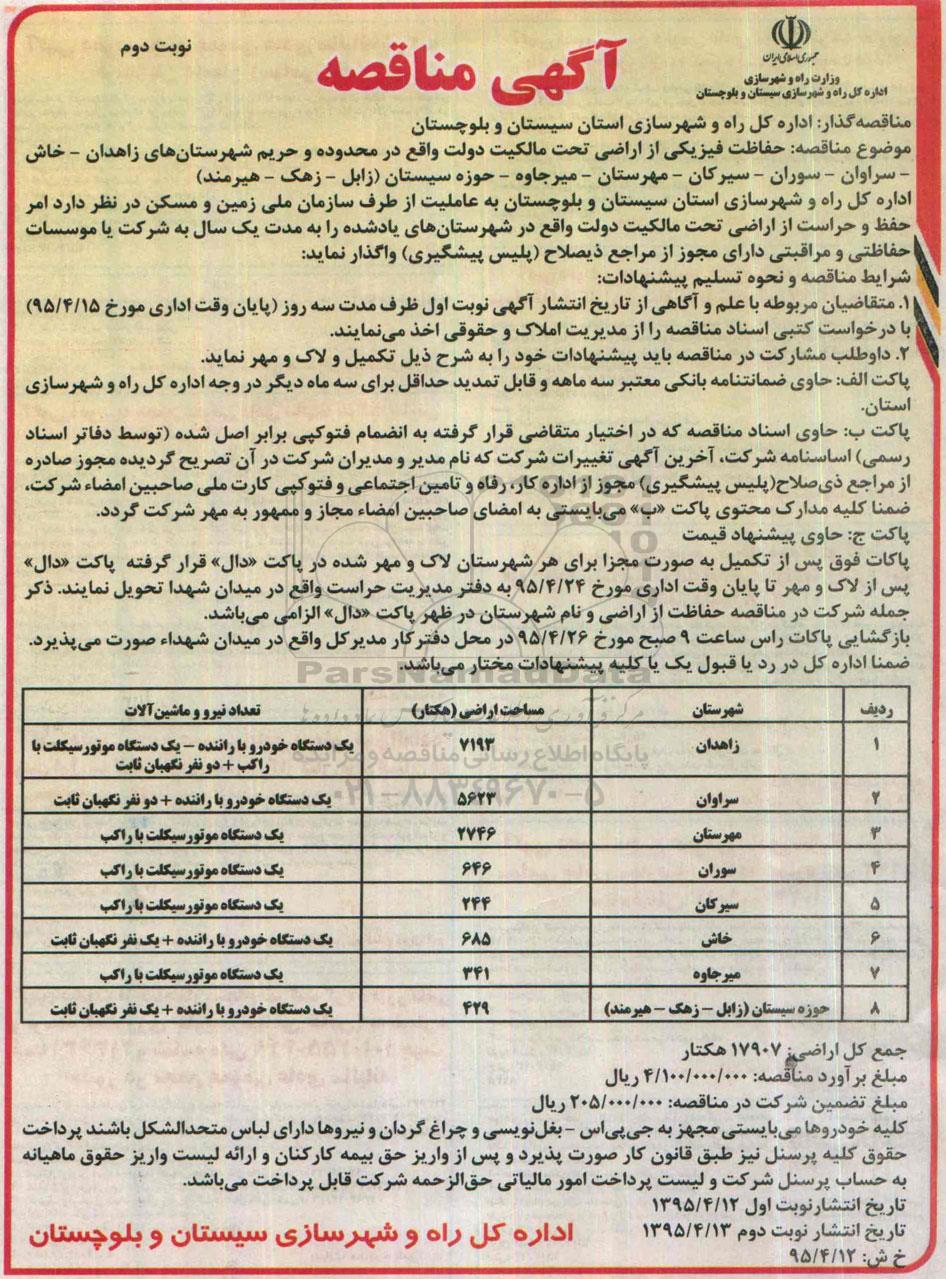 جمهوری اسلامی ایران
وزارت راه و شهرسازی
اداره کل راه و شهرسازی سیستان و بلوچستان
نوبت دوم
آگهی مناقصه
مناقصه‌گذار: اداره کل راه و شهرسازی استان سیستان و بلوچستان
موضوع مناقصه: حفاظت فیزیکی از اراضی تحت مالکیت دولت واقع در محدوده و حریم شهرستان‌های زاهدان - خاش
- سراوان - سوران - سیرکان - مهرستان - میرجاوه - حوزه سیستان (زابل - زهک - هیرمند)
اداره کل راه و شهرسازی استان سیستان و بلوچستان به عاملیت از طرف سازمان ملی زمین و مسکن در نظر دارد امر
حفظ و حراست از اراضی تحت مالکیت دولت واقع در شهرستان‌های یادشده را به مدت یک سال به شرکت یا موسسات
حفاظتی و مراقبتی دارای مجوز از مراجع ذیصلاح (پلیس پیشگیری) واگذار نماید:
شرایط مناقصه و نحوه تسلیم پیشنهادات:
۱. متقاضیان مربوطه با علم و آگاهی از تاریخ انتشار آگهی نوبت اول ظرف مدت سه روز (پایان وقت اداری مورخ ۹۵/۴/۱۵)
با درخواست کتبی اسناد مناقصه را از مدیریت املاک و حقوقی اخذ می‌نمایند.
۲. داوطلب مشارکت در مناقصه باید پیشنهادات خود را به شرح ذیل تکمیل و لاک و مهر نماید.
پاکت الف: حاوی ضمانتنامه بانکی معتبر سه ماهه و قابل تمدید حداقل برای سه ماه دیگر در وجه اداره کل راه و شهرسازی
استان.
پاکت ب: حاوی اسناد مناقصه که در اختیار متقاضی قرار گرفته به انضمام فتوکپی برابر اصل شده (توسط دفاتر اسناد
رسمی) اساسنامه شرکت، آخرین آگهی تغییرات شرکت که نام مدیر و مدیران شرکت در آن تصریح گردیده مجوز صادره
از مراجع ذی‌صلاح(پلیس پیشگیری) مجوز از اداره کار، رفاه و تامین اجتماعی و فتوکپی کارت ملی صاحبین امضاء شرکت،
ضمنا کلیه مدارک محتوی پاکت «ب» می‌بایستی به امضای صاحبین امضاء مجاز و ممهور به مهر شرکت گردد.
پاکت ج: حاوی پیشنهاد قیمت
پاکات فوق پس از تکمیل به صورت مجزا برای هر شهرستان لاک و مهر شده در پاکت «دال» قرار گرفته پاکت «دال»
پس از لاک و مهر تا پایان وقت اداری مورخ ۹۵/۴/۲۴ به دفتر مدیریت حراست واقع در میدان شهدا تحویل نمایند. ذکر
جمله شرکت در مناقصه حفاظت از اراضی و نام شهرستان در ظهر پاکت «دال» الزامی می‌باشد.
بازگشایی پاکات راس ساعت ۹ صبح مورخ ۹۵/۴/۲۶ در محل دفتر کار مدیرکل واقع در میدان شهداء صورت می‌پذیرد.
ضمنا اداره کل در رد یا قبول یک یا کلیه پیشنهادات مختار می‌باشد.
ParsNamadData
ردیف شهرستان مساحت اراضی (هکتار) تعداد نیرو و ماشین‌آلات
۱ زاهدان ۷۱۹۳ یک دستگاه خودرو با راننده - یک دستگاه موتورسیکلت با
راکب + دو نفر نگهبان ثابت
پایگاه اطلاع رسانی مناقصه و مزایده
۲ سراوان ۵۶۲۳ یک دستگاه خودرو با راننده + دو نفر نگهبان ثابت
۰۲۱-۸۸۳۴۹۶۷۰-۵
۳ مهرستان ۲۷۴۶ یک دستگاه موتورسیکلت با راکب
۴ سوران ۶۴۶ یک دستگاه موتورسیکلت با راکب
۵ سیرکان ۲۴۴ یک دستگاه موتورسیکلت با راکب
۶ خاش ۶۸۵ یک دستگاه خودرو با راننده + یک نفر نگهبان ثابت
۷ میرجاوه ۳۴۱ یک دستگاه موتورسیکلت با راکب
۸ حوزه سیستان (زابل - زهک - هیرمند) ۴۲۹ یک دستگاه خودرو با راننده + یک نفر نگهبان ثابت
جمع کل اراضی: ۱۷۹۰۷ هکتار
مبلغ برآورد مناقصه: ۴/۱۰۰/۰۰۰/۰۰۰ ریال
مبلغ تضمین شرکت در مناقصه: ۲۰۵/۰۰۰/۰۰۰ ریال
کلیه خودروها می‌بایستی مجهز به جی‌پی‌اس - بغل‌نویسی و چراغ گردان و نیروها دارای لباس متحدالشکل باشند پرداخت
حقوق کلیه پرسنل نیز طبق قانون کار صورت پذیرد و پس از واریز حق بیمه کارکنان و ارائه لیست واریز حقوق ماهیانه
به حساب پرسنل شرکت و لیست پرداخت امور مالیاتی حق‌الزحمه شرکت قابل پرداخت می‌باشد.
تاریخ انتشارنوبت اول ۱۳۹۵/۴/۱۲
تاریخ انتشار نوبت دوم ۱۳۹۵/۴/۱۳
خ ش: ۹۵/۴/۱۲
اداره کل راه و شهرسازی سیستان و بلوچستان